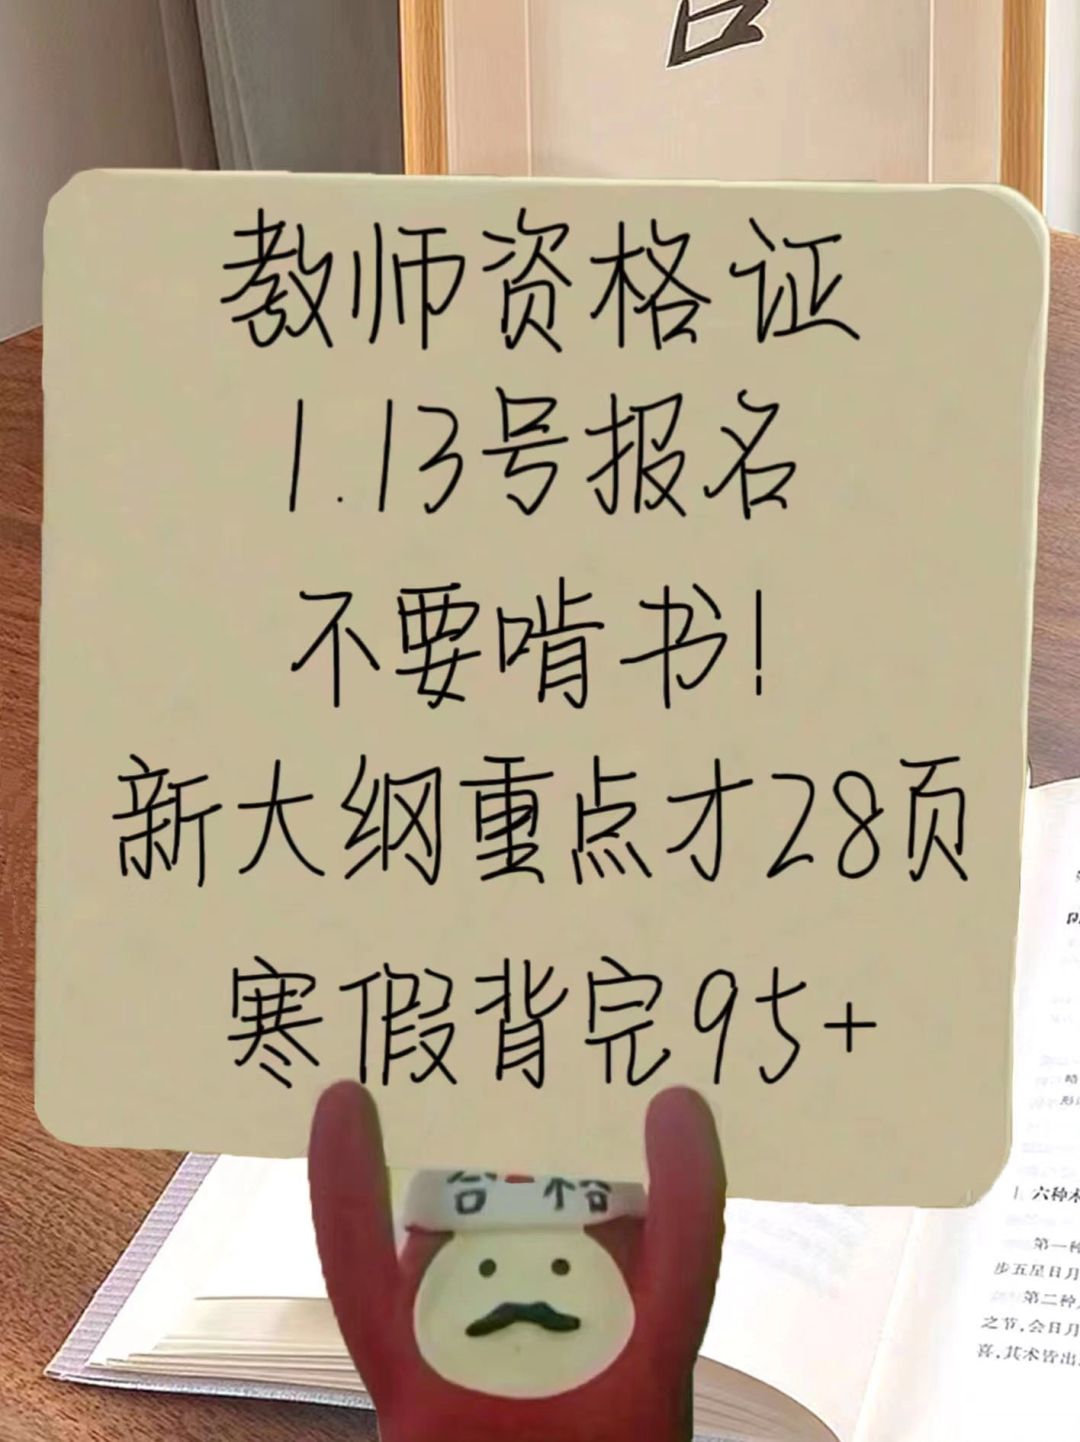 教师资格证
1.13号报名
不要啃书!
新大纲重点才28页
寒假背完95+
合格
1.六种术
第一种
步五星日月
第二种
之节,会日月
喜,其术皆出